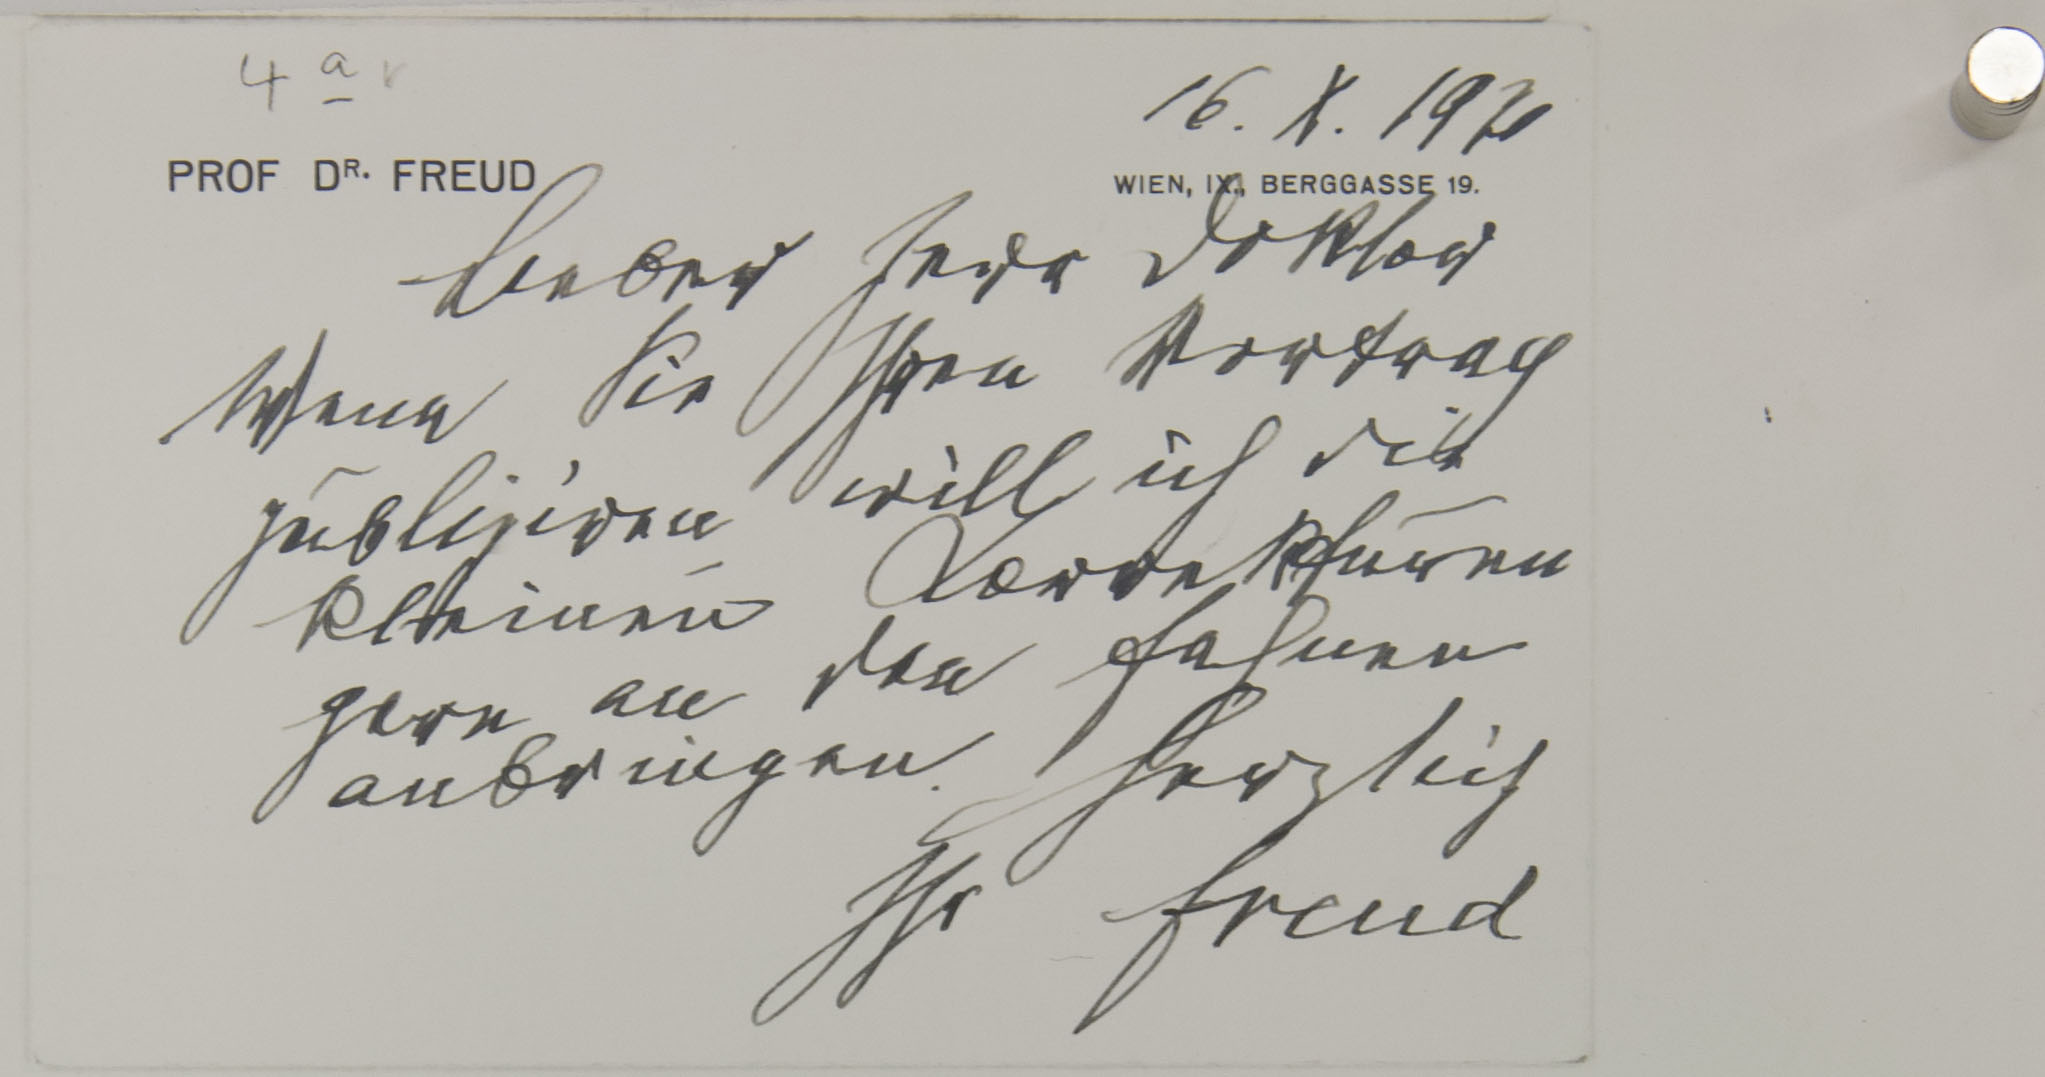 4 a v
16. X. 1920
PROF DR. FREUD
WIEN, IX., BERGGASSE 19.
Lieber Herr Doktor
Wenn Sie Ihren Vortrag
publiziren will ich die
kleinen Korrekturen
gern an den Fahnen
anbringen. Herzlich
Ihr Freud